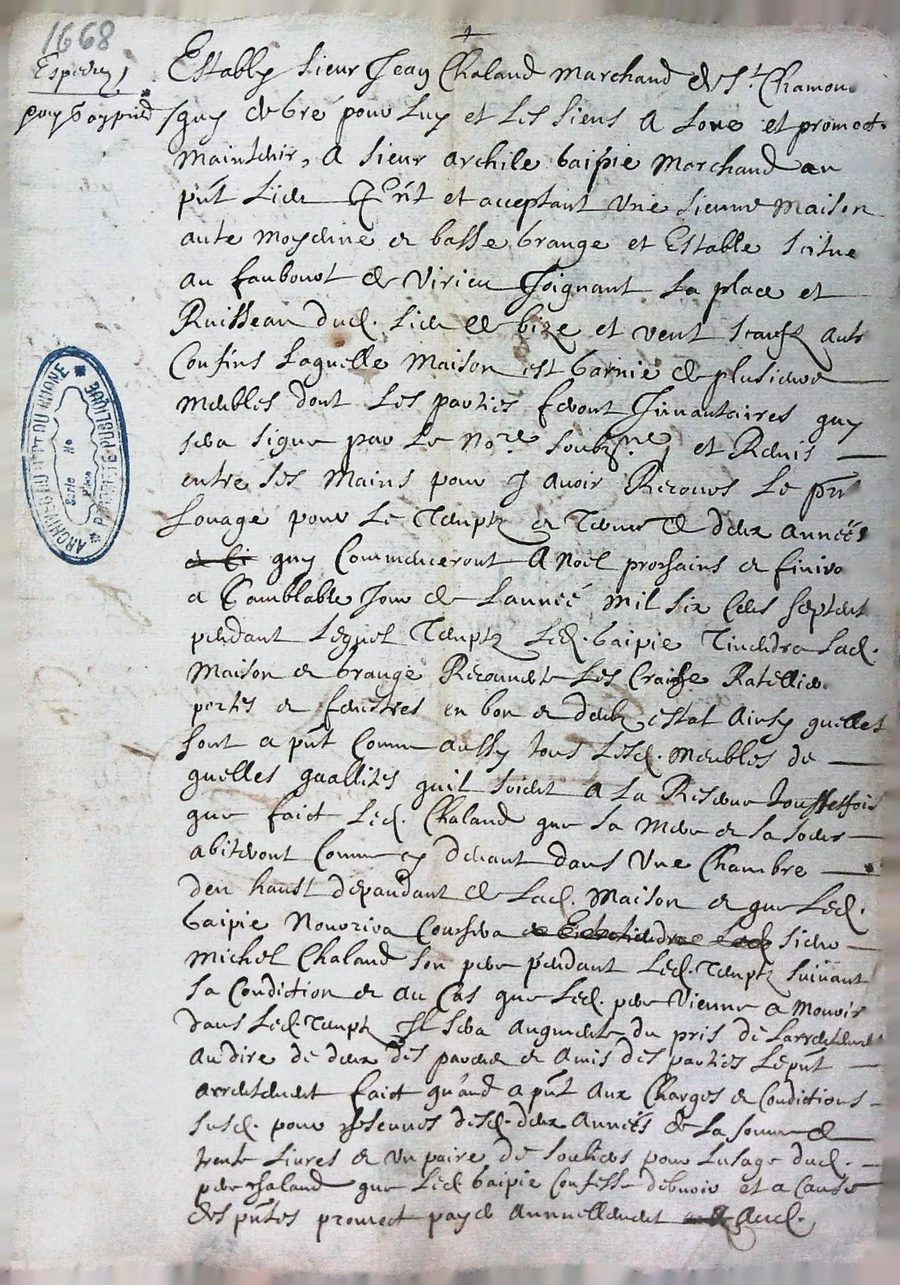 1668
Expedie
pour Gaypied
Estably Sieur Jean Chaland Marchand de St. Chamon
quy de gré pour luy et les siens a loué et promet
Maintenir, A Sieur Archile Gaipie Marchand au
pnt lieu Pnt et acceptant Une sienne Maison
aute moyenne et basse Grange et Estable scitue
au faubourt de Virieu Joignant la place et
Ruisseau dud. lieu de bize et vent saufz autr
Confins laquelle Maison est garnie de plusieurs
meubles dont les parties feront Innantaires quy
sera signe par le Nore. soubzne. et Remis
entre ses Mains pour y avoir Recours le pnt
louage pour le Temptz et Terme de deux années
quy Commenceront A Noel prochains et finira
a Samblable Jour de lannée mil six Cens septent
pendant lequel Temptz led. Gaipie Tiendra lad.
Maison et Grange Recouverte les Craiche Ratellie
portes et fenestres en bon et deub estat Ainsy quelles
sont a pnt Comme aussy tous lesd. Meubles de
quelles quallites quil soient A la Reserve touttesfois
que faict led. Chaland que sa Mere et sa soeur
abiteront Comme cy devant dans Une Chambre
den haust depandant de lad. Maison et que led.
Gaipie Nourrira sieur
Michel Chaland son pere pendant led. Temptz suivant
sa Condition et au Cas que led. pere Vienne a Mourir
dans led. Temptz Il sera augmente du pris de larrentement
Au dire de deux des parens et Amis des parties le pnt
arrentement faict quand a pnt Aux Charges et Conditions
susd. pour desd. deux Années de la somme de
trente livres et un paire de souliers pour lusage dud.
pere Chaland que led Gaipie Confesse debvoir et a Cause
des pntes promect payer Annuellement Aud.
ARCHIVES DU DEPT DU RHONE
PROPRIETE PUBLIQUE
Serie
No